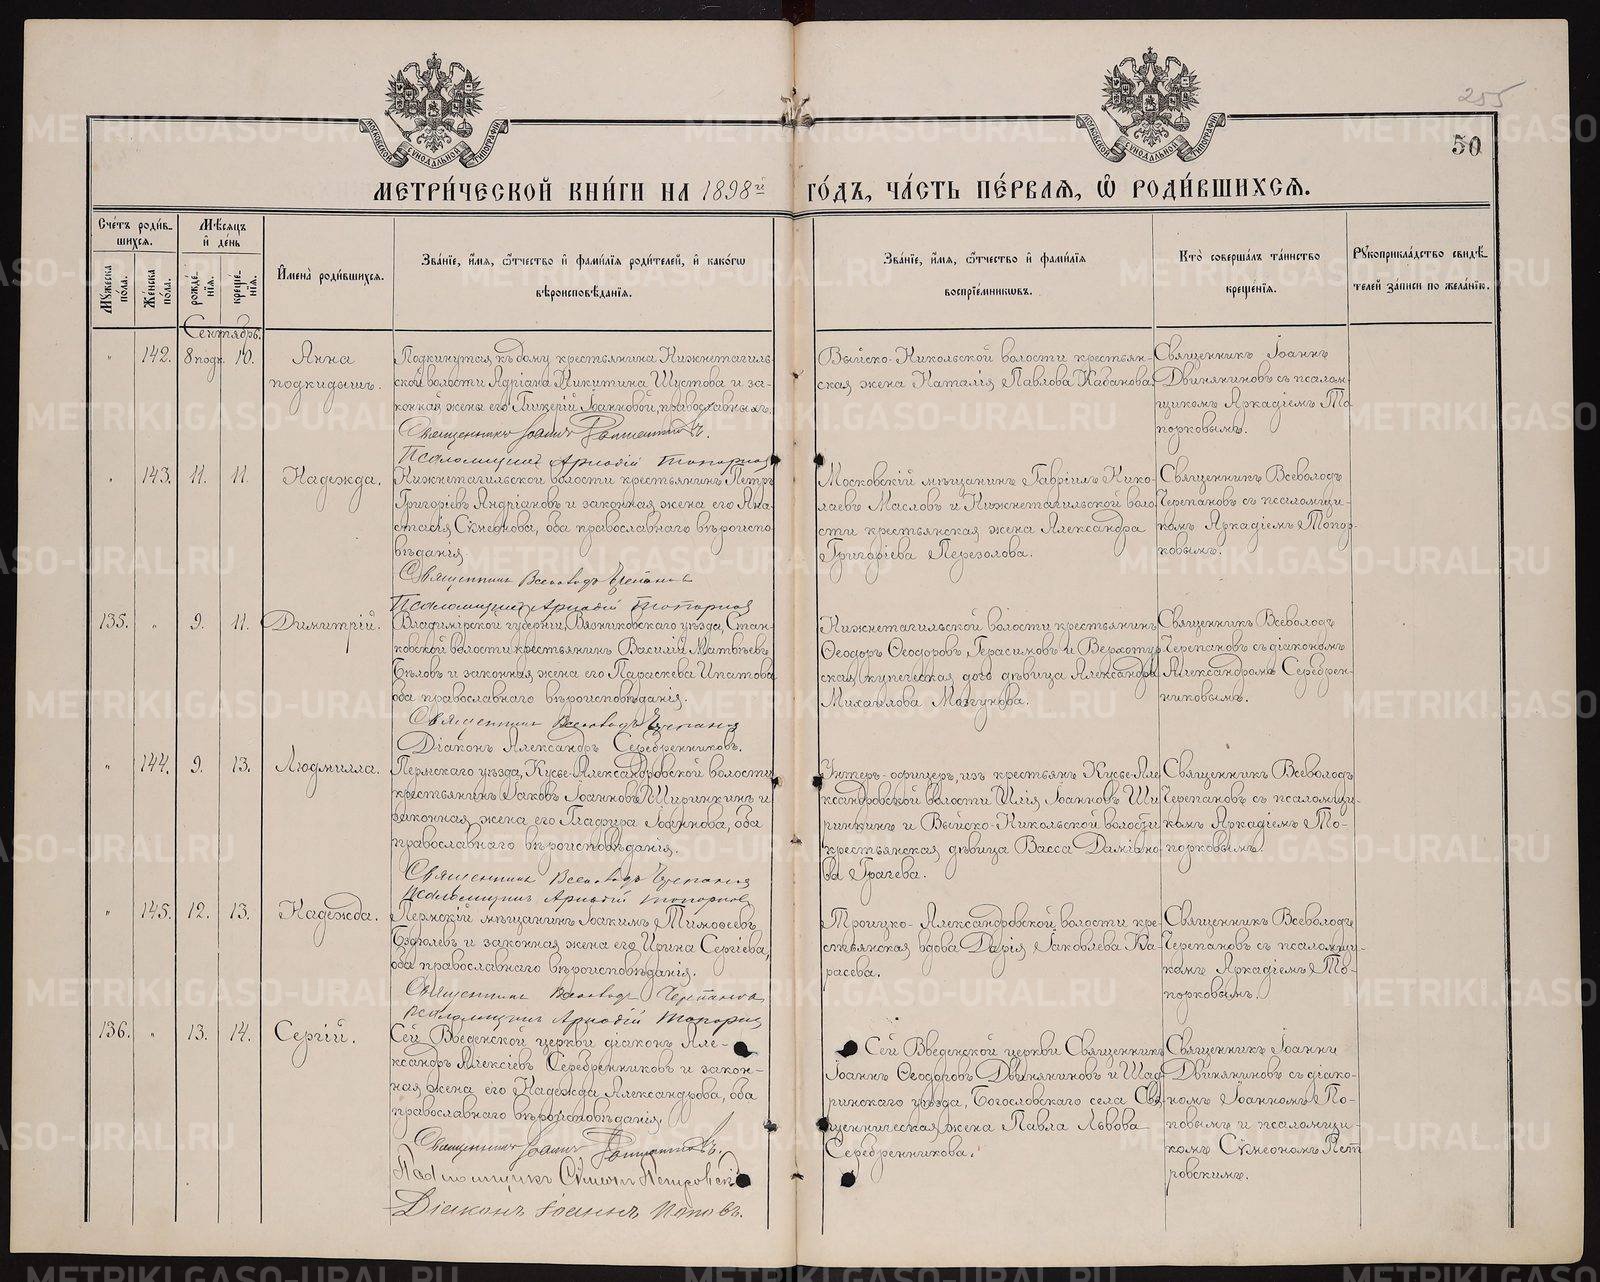 255
50
МОСКОВСКОЙ СѴНОДАЛЬНОЙ ТИПОГРАФІИ
МОСКОВСКОЙ СѴНОДАЛЬНОЙ ТИПОГРАФІИ
МЕТРИ́ЧЕСКОЙ КНИ́ГИ НА 1898й ГО́ДЪ, ЧА́СТЬ ПЕ́РВАЯ, Ѽ РОДИ́ВШИХСЯ.
Сче́тъ роди́в-
шихся.
Мѣ́сяцъ
и҆ де́нь
Мꙋ́жеска
по́ла.
Же́нска
по́ла.
рожде́-
нїѧ.
креще́-
нїѧ.
И҆мена̀ роди́вшихся.
Зва́нїе, и҆́мѧ, ѻ҆́тчество и҆ фами́лїѧ роди́телей, и҆ како́гѡ
вѣроисповѣ́данїѧ.
Зва́нїе, и҆́мѧ, ѻ҆́тчество и҆ фами́лїѧ
воспрїе́мникѡвъ.
Кто̀ соверша́лъ та́инство
креще́нїѧ.
Рꙋкоприкла́дство свидѣ́-
телей за́писи по жела́нїю.
Сентябрь.
" 142. 8 подк. 10.
Анна
подкидышъ.
Подкинутая къ дому крестьянина Нижнетагиль-
ской волости Адріана Никитина Шустова и за-
конной жены его Гликеріи Іоанновой, православныхъ.
Священникъ Іоаннъ Двиняниновъ.
Псаломщикъ Аркадій Топорковъ
Выйско-Никольской волости крестьян-
ская жена Наталія Павлова Кабанова.
Священникъ Іоаннъ
Двиняниновъ съ псалом-
щикомъ Аркадіемъ То-
порковымъ.
" 143. 11. 11.
Надежда.
Нижнетагильской волости крестьянинъ Петръ
Григоріевъ Андріановъ и законная жена его Ана-
стасія Сѵмеонова, оба православнаго вѣроиспо-
вѣданія.
Священникъ Всеволодъ Черепановъ
Псаломщикъ Аркадій Топорковъ
Московскій мѣщанинъ Гавріилъ Нико-
лаевъ Масловъ и Нижнетагильской воло-
сти крестьянская жена Александра
Григоріева Перезолова.
Священникъ Всеволодъ
Черепановъ съ псаломщи-
комъ Аркадіемъ Топор-
ковымъ.
135. " 9. 11.
Димитрій.
Владимірской губерніи, Вязниковскаго уѣзда, Стан-
ковской волости крестьянинъ Василій Матвѣевъ
Бѣловъ и законная жена его Параскева Ипатова
оба православнаго вѣроисповѣданія.
Священникъ Всеволодъ Черепановъ
Діаконъ Александръ Серебренниковъ.
Нижнетагильской волости крестьянинъ
Ѳеодоръ Ѳеодоровъ Герасимовъ и Верхотур-
ская купеческая дочь дѣвица Александра
Михаилова
Священникъ Всеволодъ
Черепановъ съ діакономъ
Александромъ Серебрен-
никовымъ.
" 144. 9. 13.
Людмилла.
Пермскаго уѣзда, Кусье-Александровской волости
крестьянинъ Іаковъ Іоанновъ Ширинкинъ и
законная жена его Глафира Іоаннова, оба
православнаго вѣроисповѣданія.
Священникъ Всеволодъ Черепановъ
Псаломщикъ Аркадій Топорковъ
Унтеръ-офицеръ, изъ крестьянъ Кусье-Але-
ксандровской волости Илія Іоанновъ Ши-
ринкинъ и Выйско-Никольской волости
крестьянская дѣвица Васса Даміано-
ва Грачева.
Священникъ Всеволодъ
Черепановъ съ псаломщи-
комъ Аркадіемъ То-
порковымъ.
" 145. 12. 13.
Надежда.
Пермскій мѣщанинъ Іоакимъ Тимоѳеевъ
и законная жена его Ирина Сергіева,
оба православнаго вѣроисповѣданія.
Священникъ Всеволодъ Черепановъ
Псаломщикъ Аркадій Топорковъ
Троицко-Александровской волости кре-
стьянская вдова Дарія Іаковлева Ка-
расева.
Священникъ Всеволодъ
Черепановъ съ псаломщи-
комъ Аркадіемъ То-
порковымъ.
136. " 13. 14.
Сергій.
Сей Введенской церкви діаконъ Але-
ксандръ Алексіевъ Серебренниковъ и закон-
ная жена его Надежда Александрова, оба
православнаго вѣроисповѣданія.
Священникъ Іоаннъ Двиняниновъ.
Псаломщикъ Сѵмеонъ Петровскій
Діаконъ Іоаннъ Поповъ.
Сей Введенской церкви Священникъ
Іоаннъ Ѳеодоровъ Двиняниновъ и Шад-
ринскаго уѣзда, Богословскаго села Свя-
щенническая жена Павла Львова
Серебренникова.
Священникъ Іоаннъ
Двиняниновъ съ діако-
номъ Іоанномъ По-
повымъ и псаломщи-
комъ Сѵмеономъ Пет-
ровскимъ.
METRIKI.GASO-URAL.RU